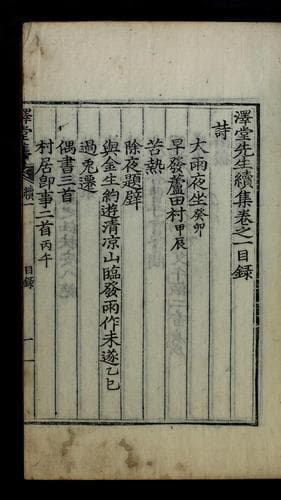 澤堂先生續集卷之一目錄
詩
大雨夜坐癸卯
早發蘆田村甲辰
苦熱
除夜題壁
與金生約遊淸凉山臨發雨作未遂乙巳
過兎遷
偶書三首
村居卽事二首丙午
澤堂集 續一 目錄 一